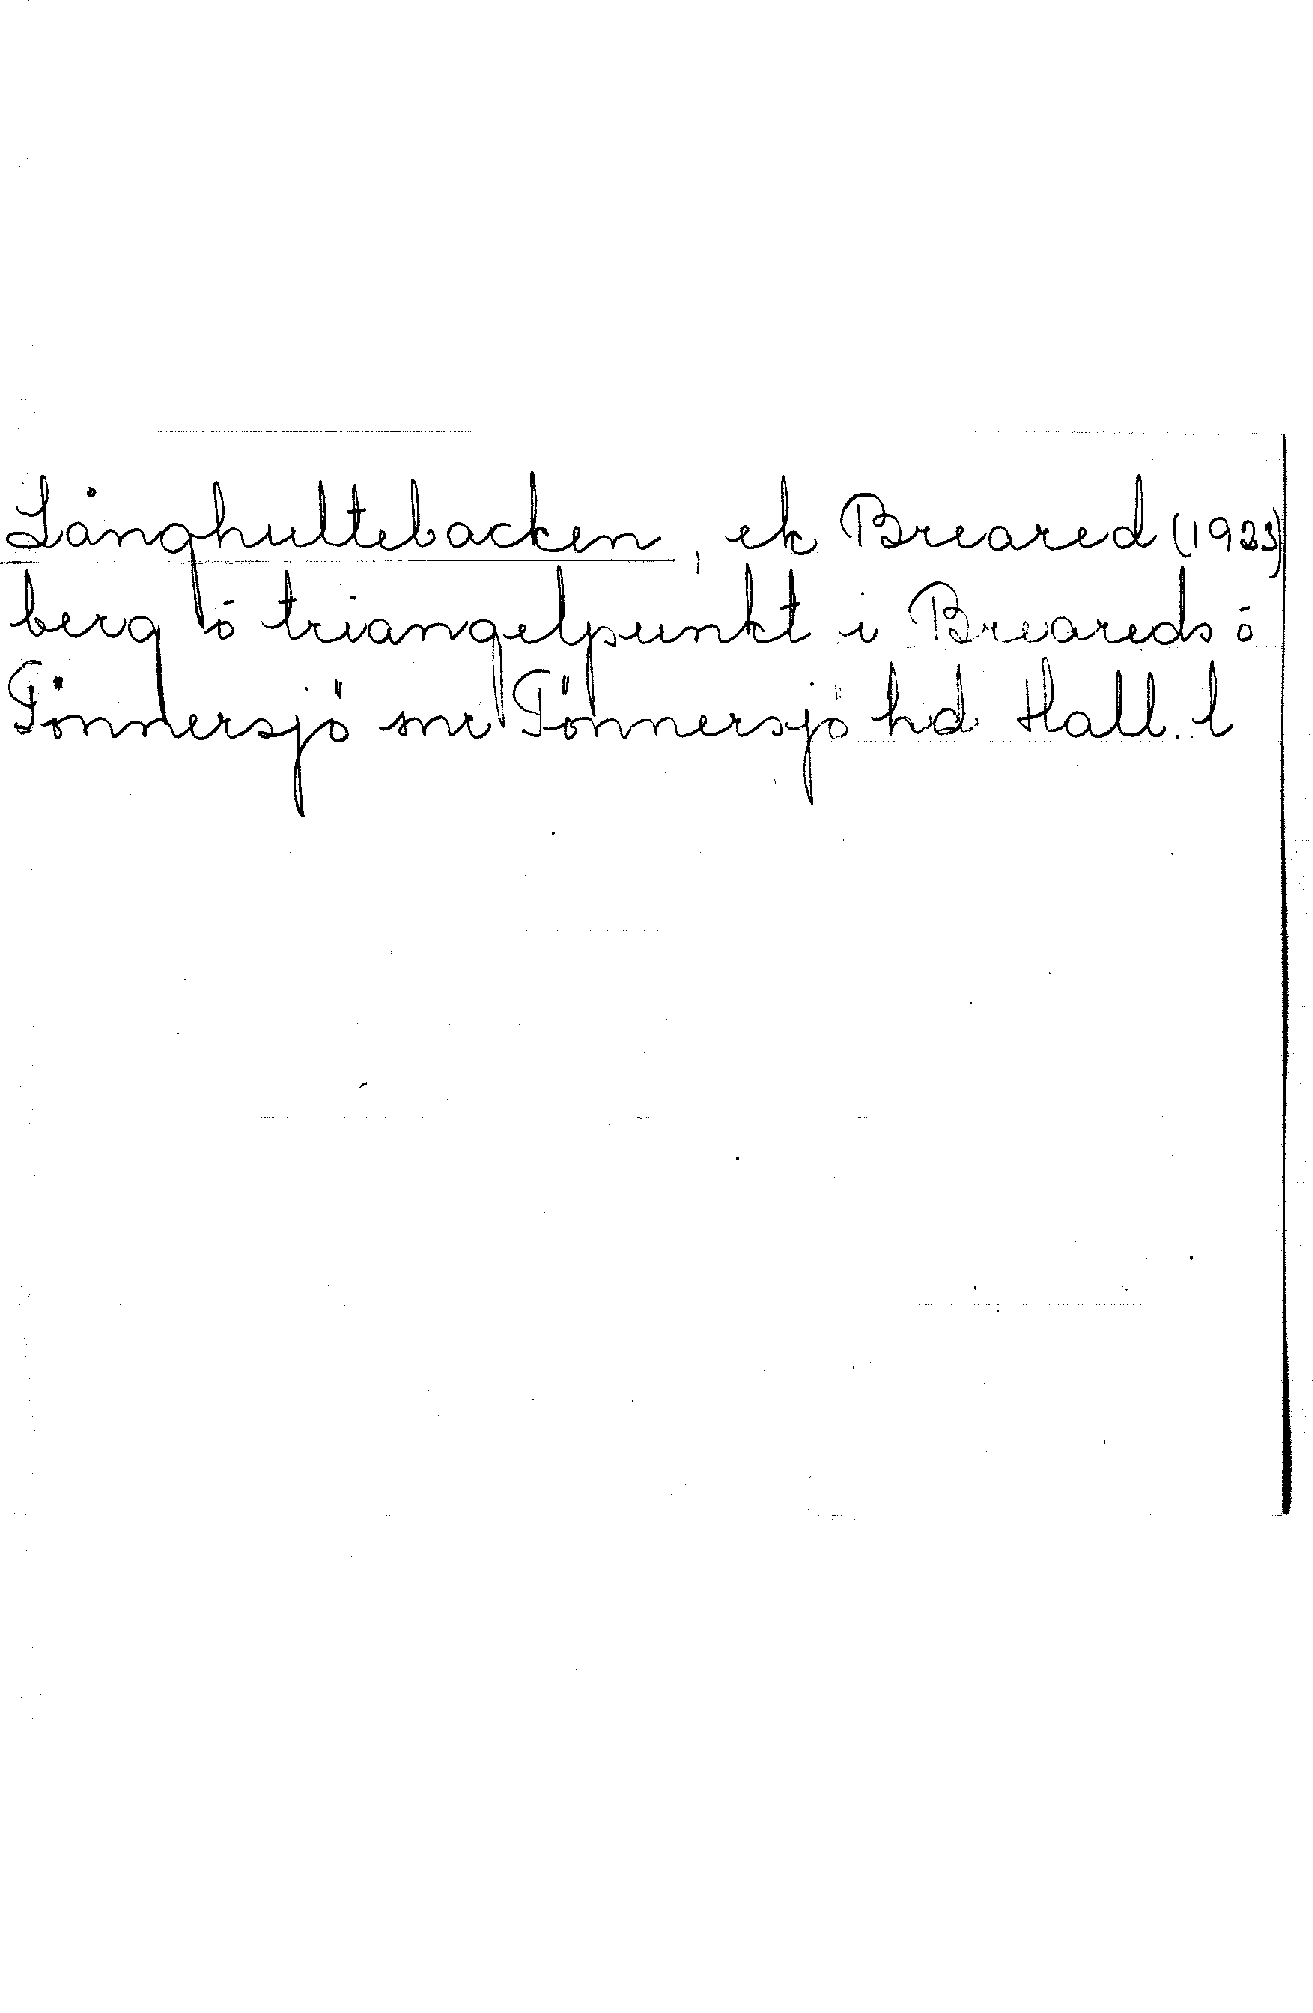 Långhultebacken, ek Breared (1923)
berg o triangelpunkt i Breareds o
Tönnersjö snr Tönnersjö hd Hall. l